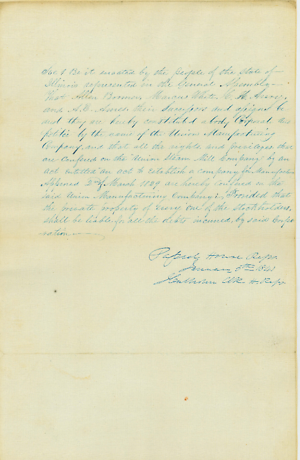 Sec 1 Be it enacted by the people of the state of
Illinois represented in the General Assembly
That Allen Marcus White
and A. H. their Successors and assigns be
and they are hereby constituted a body corporate and
politic by the name of the Union Manufacturing
Company and that all the rights and privileges that
are conferred on the Union Steam Mill Company by an
act entitled an act to establish a company for Manufacturing
Approved 2d March 1839 are hereby conferred on the
said Union Manufacturing Company; Provided that
the private property of every one of the stockholders
shall be liable for all the debts incurred by said Corpo
ration
Passed House Reps
January 1841
Clk H Reps